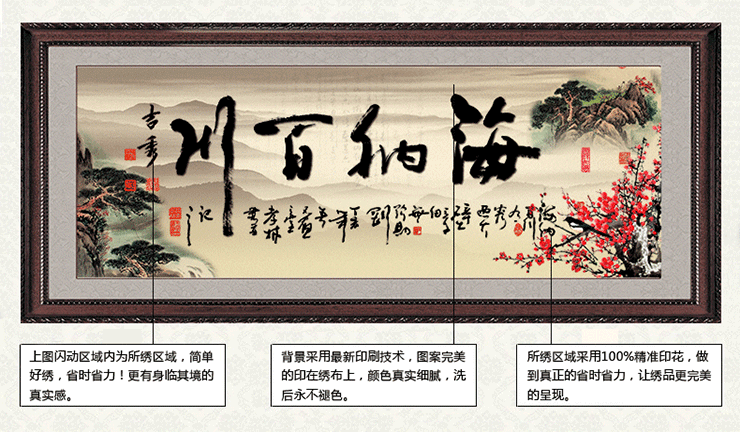 海纳百川
吉秀
上图闪动区域内为所绣区域，简单
好绣，省时省力！更有身临其境的
真实感。
背景采用最新印刷技术，图案完美
的印在绣布上，颜色真实细腻，洗
后永不褪色。
所绣区域采用100%精准印花，做
到真正的省时省力，让绣品更完美
的呈现。